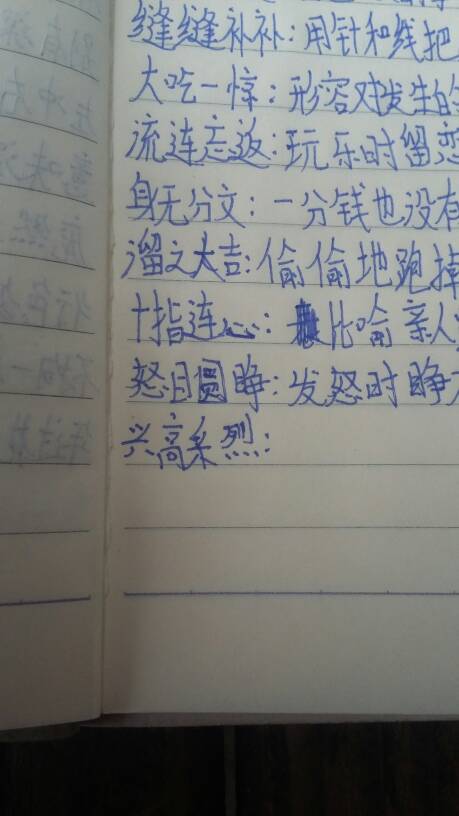 缝缝补补：用针和线把
大吃一惊：形容对发生的
流连忘返：玩乐时留恋
身无分文：一分钱也没有
溜之大吉：偷偷地跑掉
十指连心：比喻亲人
怒目圆睁：发怒时睁
兴高采烈：